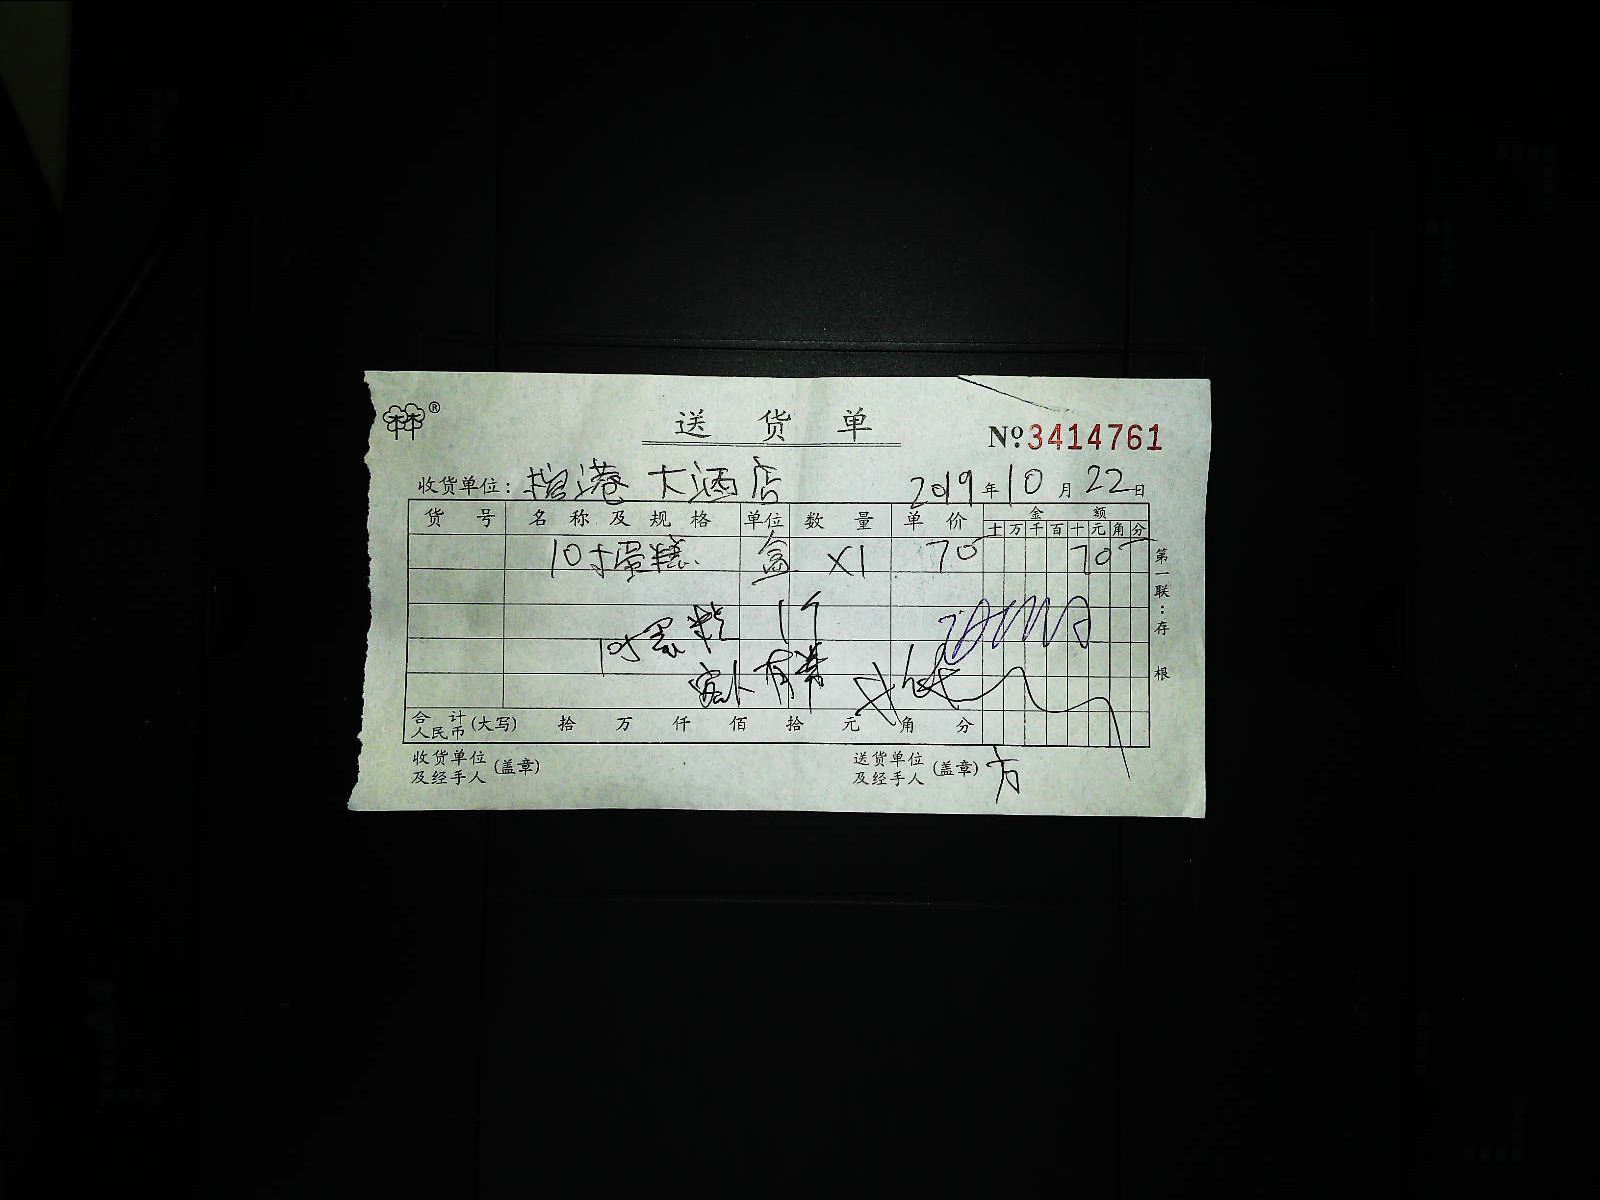 送货单
№3414761
收货单位：榕港大酒店 2019年10月22日
货号 名称及规格 单位 数量 单价 金额
十万千百十元角分
10寸蛋糕 盒 X1 70 70
10寸蛋糕 1个
合计人民币(大写) 拾 万 仟 佰 拾 元 角 分
收货单位及经手人(盖章) 送货单位及经手人(盖章) 方
第一联：存根